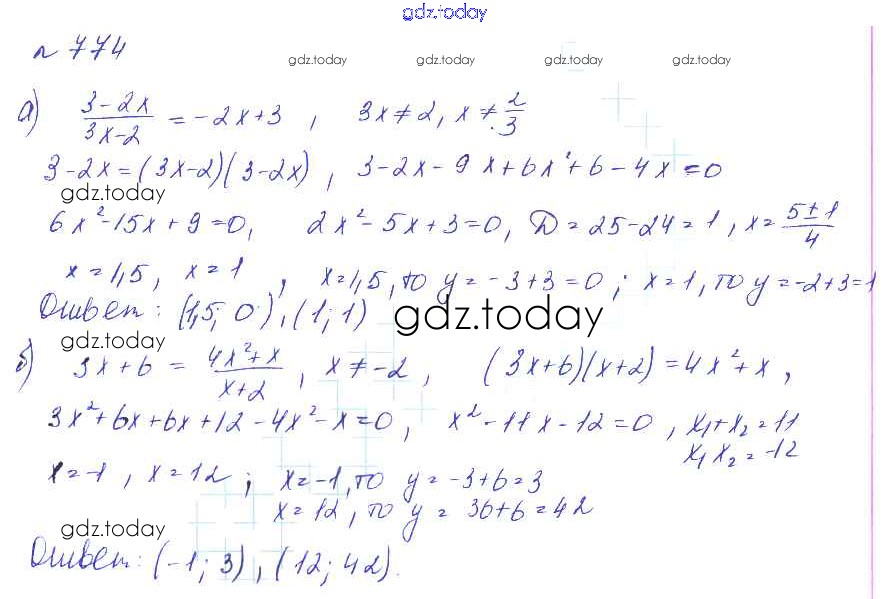 gdz.today
№ 774
gdz.today gdz.today gdz.today gdz.today
а) (3-2x)/(3x-2) = -2x+3, 3x≠2, x≠2/3
3-2x=(3x-2)(3-2x), 3-2x-9x+6x²+6-4x=0
gdz.today
6x²-15x+9=0, 2x²-5x+3=0, D=25-24=1, x=(5±1)/4
x=1,5, x=1, x=1,5, то y=-3+3=0; x=1, то y=-2+3=1
Ответ: (1,5; 0), (1; 1)
gdz.today
gdz.today
б) 3x+6 = (4x²+x)/(x+2), x≠-2, (3x+6)(x+2)=4x²+x,
3x²+6x+6x+12-4x²-x=0, x²-11x-12=0, x₁+x₂=11
x₁x₂=-12
x=-1, x=12; x=-1, то y=-3+6=3
x=12, то y=36+6=42
gdz.today
Ответ: (-1; 3), (12; 42).